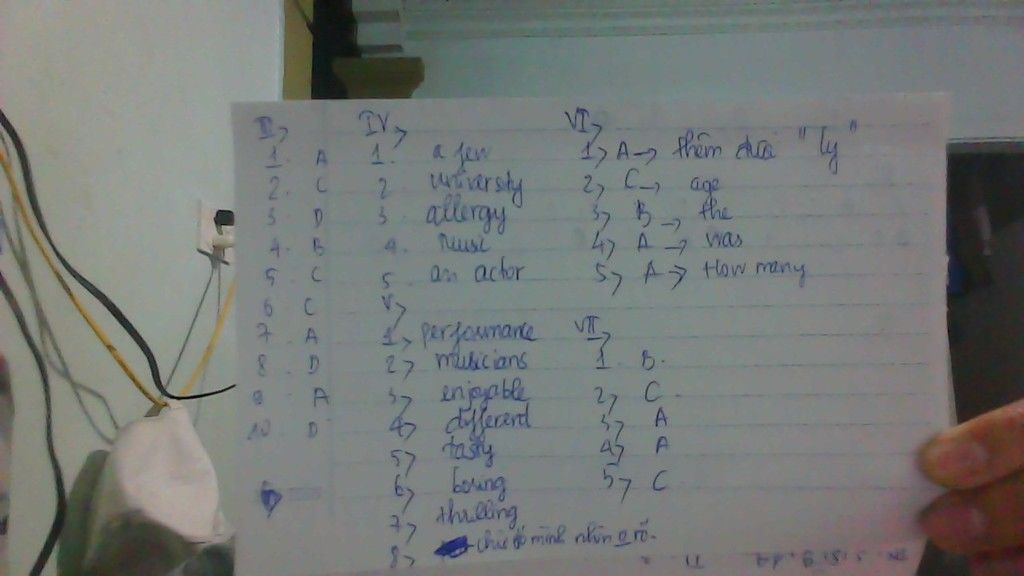 III,
1. A
2. C
3. D
4. B
5. C
6 C
7. A
8. D
9. A
10. D
IV,
1. a few
2. university
3. allergy
4. Music
5. an actor
V,
1, performance
2, musicians
3, enjoyable
4, different
5, tasty
6, boring
7, thrilling
8, chữ đó mình nhìn o rõ.
VI,
1, A → thêm đuôi "ly"
2, C → age
3, B → the
4, A → was
5, A → How many
VII,
1. B.
2, C.
3, A
4, A
5, C